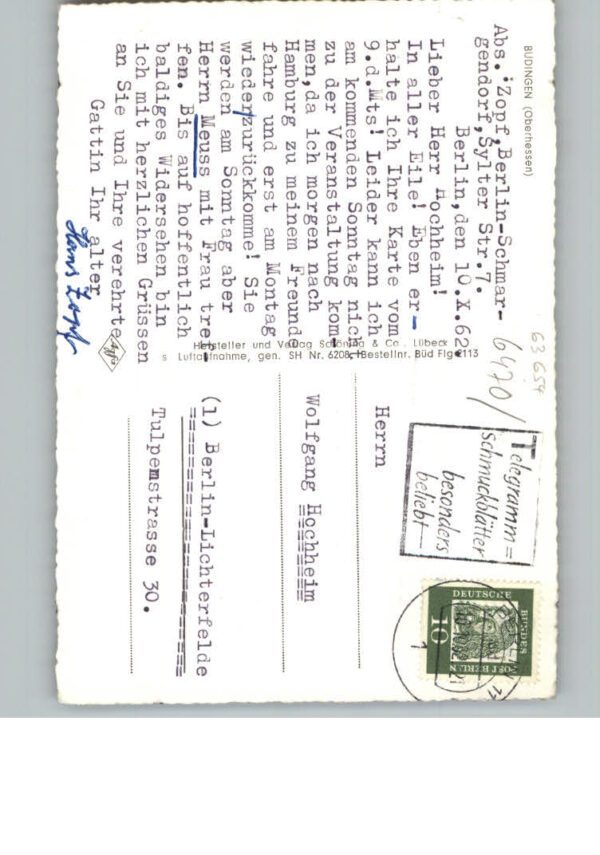 BÜDINGEN (Oberhessen)
Abs.: Zopf, Berlin-Schmar-
gendorf, Sylter Str.7.
Berlin, den 10.X.62
Lieber Herr Hochheim!
In aller Eile! Eben er-
halte ich Ihre Karte vom
9.d.Mts! Leider kann ich
am kommenden Sonntag nicht
zu der Veranstaltung kom-
men,da ich morgen nach
Hamburg zu meinem Freunde
fahre und erst am Montag
wieder zurückkomme! Sie
werden am Sonntag aber
Herrn Meuss mit Frau tref-
fen. Bis auf hoffentlich
baldiges Widersehen bin
ich mit herzlichen Grüssen
an Sie und Ihre verehrte
Gattin Ihr alter
Hans Zopf
Agfa
Hersteller und Verlag Schöning & Co., Lübeck
s Luftaufnahme, gen. SH Nr. 6208, Bestellnr. Büd Flg 2113
63 654
6470/
Telegramm=
schmuckblätter
besonders
beliebt
DEUTSCHE
BUNDES
POST BERLIN
10
1
11
Herrn
Wolfgang Hochheim
(1) Berlin-Lichterfelde
Tulpemstrasse 30.